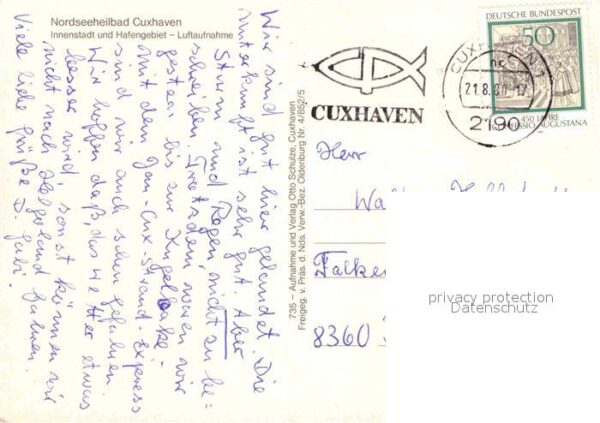 Nordseeheilbad Cuxhaven
Innenstadt und Hafengebiet – Luftaufnahme
Wir sind gut hier gelandet. Die
Unterkunft ist sehr gut. Aber
Sturm und Regen, nicht zu be=
schreiben. Trotzdem waren wir
gestern bis zur Kugelbake.
mit dem Jan-Cux-Strand-Express
sind wir auch schon gefahren
Wir hoffen daß, das Wetter etwas
besser wird, sonst können wir
nicht nach Helgoland fahren.
Viele liebe Grüße D. Gabi.
735 – Aufnahme und Verlag Otto Schulze, Cuxhaven
Freigeg. v. Präs. d. Nds. Verw.-Bez. Oldenburg Nr. 4/852/5
CUXHAVEN
CUXHAVEN 1
21.8.80-17
2190
DEUTSCHE BUNDESPOST
50
450 JAHRE
CONFESSIO AUGUSTANA
Herr
Falke
8360
privacy protection
Datenschutz